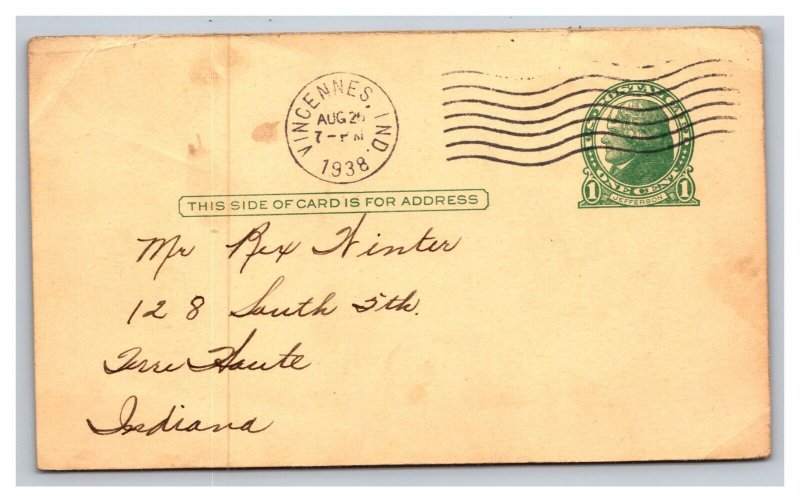 VINCENNES, IND.
AUG 26
7-PM
1938
U.S. POSTAGE
ONE CENT
1 1
JEFFERSON
THIS SIDE OF CARD IS FOR ADDRESS
Mr Rex Winter
128 South 5th.
Terre Haute
Indiana